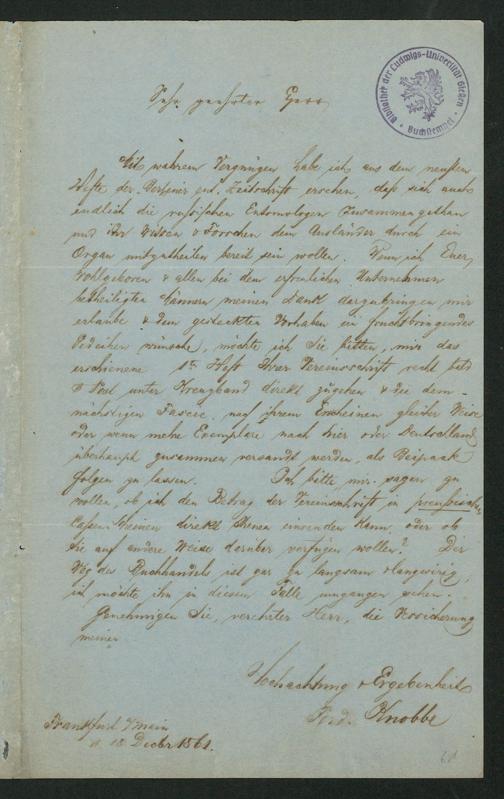 Bibliothek der Ludwigs-Universität Gießen
Buchstempel
Sehr geehrter Herr
Mit wahrem Vergnügen habe ich aus dem neusten
Hefte der Berliner ent. Zeitschrift ersehen, daß sich auch
endlich die russischen Entomologen zusammengethan
und ihr Wissen & Forschen dem Ausländer durch ein
Organ mitzutheilen bereit sein wollen. Wenn ich Euer
Wohlgeboren & allen bei dem erfreulichen Unternehmen
betheiligten Männern meinen Dank darzubringen mir
erlaube & dem gedeckten Vorhaben ein fruchtbringendes
Gedeihen wünsche, möchte ich Sie bitten, mir das
erschienene 1te Heft Ihrer Vereinsschrift recht bald
Post unter Kreuzband direkt zugehen & die dem-
nächstigen nach ihrem Erscheinen gleicher Weise
oder wenn mehr Exemplare nach hier oder Deutschland
überhaupt zusammen versandt werden, als Beipack
folgen zu lassen. Ich bitte mir sagen zu
wollen, ob ich den Betrag der Vereinsschrift in preußischen
Cassenscheinen direkt Ihnen einsenden kann, oder ob
Sie auf andere Weise darüber verfügen wollen? Der
Weg des Buchhandels ist gar zu langsam & langwierig,
ich möchte ihn in diesem Falle umgangen sehen.
Genehmigen Sie, verehrter Herr, die Versicherung
meiner
Hochachtung & Ergebenheit
Ferd. Knobbe
Frankfurt a/main
d. 18 Decbr 1861.